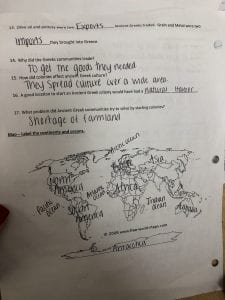 13. Olive oil and pottery were two Exports Ancient Greeks traded. Grain and Metal were two
Imports they brought into Greece.
14. Why did the Greeks communities trade?
To get the goods they needed
15. How did colonies affect ancient Greek culture?
They spread culture over a wide area
16. A good location to start an Ancient Greek colony would have had a Natural Harbor
17. What problem did Ancient Greek communities try to solve by starting colonies?
Shortage of farmland
Map – Label the continents and oceans.
Arctic ocean
North America
Europe
Asia
Atlantic ocean
Africa
Pacific ocean
South America
Indian ocean
© 2006 www.free-world-maps.com